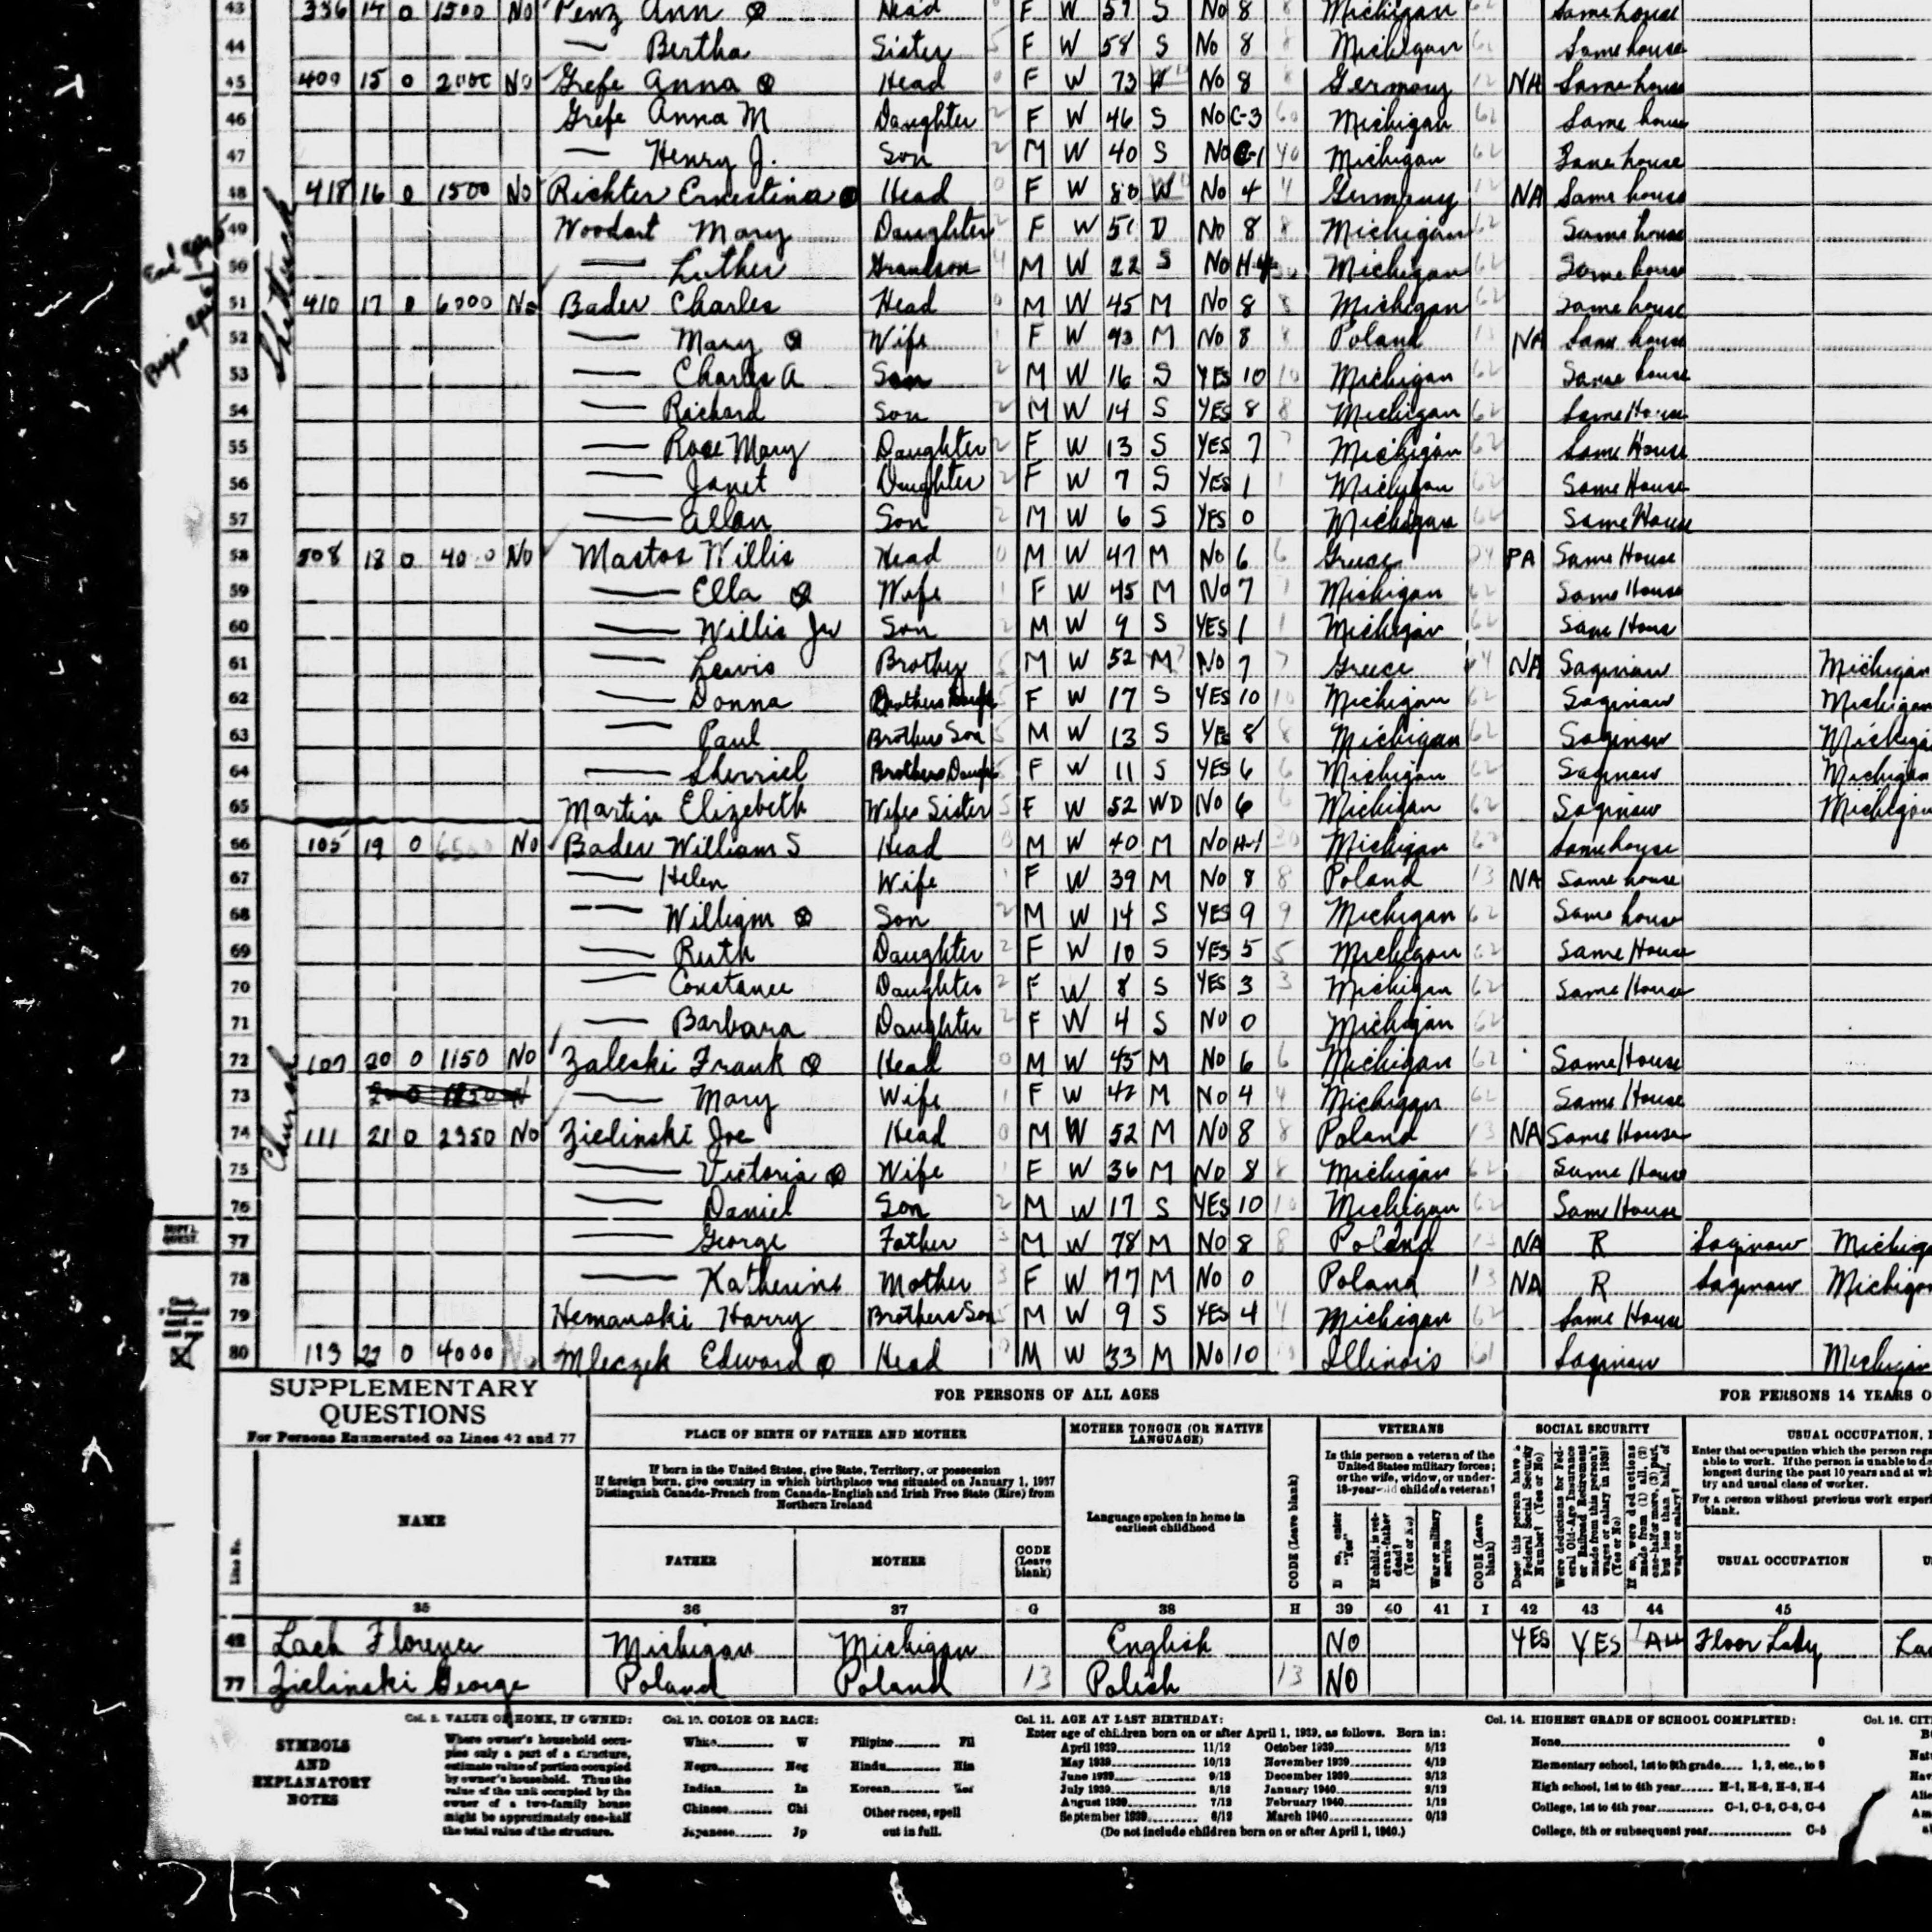 43 336 14 0 1500 No Penz Ann ⊗ Head F W 57 S No 8 8 Michigan 62 Same house
44 — Bertha Sister 5 F W 58 S No 8 8 Michigan 62 Same house
45 409 15 0 2000 No Grefe Anna ⊗ Head 0 F W 73 No 8 8 Germany 12 NA Same house
46 Grefe Anna M Daughter 2 F W 46 S No C-3 60 Michigan 62 Same house
47 — Henry J. Son 2 M W 40 S No C-1 40 Michigan 62 Same house
48 418 16 0 1500 No Richter Ernestina ⊗ Head 0 F W 80 W No 4 4 Germany 12 NA Same house
49 Woodart Mary Daughter 2 F W 51 D No 8 8 Michigan 62 Same house
50 — Luther Grandson 4 M W 22 S No H-4 30 Michigan 62 Same house
51 410 17 0 6000 No Bader Charles Head 0 M W 45 M No 8 8 Michigan 62 Same house
52 — Mary ⊗ Wife 1 F W 43 M No 8 8 Poland 13 NA Same house
53 — Charles A Son 2 M W 16 S YES 10 10 Michigan 62 Same house
54 — Richard Son 2 M W 14 S YES 8 8 Michigan 62 Same House
55 — Rose Mary Daughter 2 F W 13 S YES 7 7 Michigan 62 Same House
56 — Janet Daughter 2 F W 7 S YES 1 1 Michigan 62 Same House
57 — Allan Son 2 M W 6 S YES 0 Michigan 62 Same House
58 508 18 0 No Mastos Willis Head 0 M W 47 M No 6 6 Greece 24 PA Same House
59 — Ella ⊗ Wife 1 F W 45 M No 7 7 Michigan 62 Same House
60 — Willis Jr Son 2 M W 9 S YES 1 1 Michigan 62 Same House
61 — Lewis Brother 5 M W 52 M 7 No 7 7 Greece 24 NA Saginaw Michigan
62 — Donna Brothers 5 F W 17 S YES 10 10 Michigan 62 Saginaw Michigan
63 — Paul Brothers Son 5 M W 13 S YES 8 8 Michigan 62 Saginaw Michiga
64 — Sherriel Brothers Daugh 5 F W 11 S YES 6 6 Michigan 62 Saginaw Michigan
65 Martin Elizebeth Wifes Sister 5 F W 52 WD No 6 6 Michigan 62 Saginaw Michigan
66 105 19 0 6500 No Bader William S Head 0 M W 40 M No H-1 30 Michigan 62 Same house
67 — Helen Wife 1 F W 39 M No 8 8 Poland 13 NA Same house
68 — William ⊗ Son 2 M W 14 S YES 9 9 Michigan 62 Same house
69 — Ruth Daughter 2 F W 10 S YES 5 5 Michigan 62 Same House
70 — Constance Daughter 2 F W 8 S YES 3 3 Michigan 62 Same House
71 — Barbara Daughter 2 F W 4 S No 0 Michigan 62
72 107 20 0 1150 No Zaleski Frank ⊗ Head 0 M W 45 M No 6 6 Michigan 62 Same House
73 — Mary Wife 1 F W 42 M No 4 4 Michigan 62 Same House
74 111 21 0 2950 No Zielinski Joe Head 0 M W 52 M No 8 8 Poland 13 NA Same House
75 — Victoria ⊗ Wife 1 F W 36 M No 8 8 Michigan 62 Same House
76 — Daniel Son 2 M W 17 S YES 10 10 Michigan 62 Same House
77 — George Father 3 M W 78 M No 8 8 Poland 13 NA R Saginaw Michig
78 — Katherine Mother 3 F W 77 M No 0 Poland 13 NA R Saginaw Michigan
79 Hemanski Harry Brothers Son 5 M W 9 S YES 4 4 Michigan 62 Same House
80 113 22 0 4000 No Mleczek Edward ⊗ Head 0 M W 33 M No 10 10 Illinois 61 Saginaw Michigan
Church
SUPP'L QUEST.
SUPPLEMENTARY QUESTIONS
For Persons Enumerated on Lines 42 and 77
FOR PERSONS OF ALL AGES
FOR PERSONS 14 YEARS O
PLACE OF BIRTH OF FATHER AND MOTHER
MOTHER TONGUE (OR NATIVE LANGUAGE)
VETERANS
SOCIAL SECURITY
USUAL OCCUPATION, I
Line No.
NAME
If born in the United States, give State, Territory, or possession
If foreign born, give country in which birthplace was situated on January 1, 1937
Distinguish Canada-French from Canada-English and Irish Free State (Eire) from Northern Ireland
FATHER
MOTHER
CODE (Leave blank)
Language spoken in home in earliest childhood
CODE (Leave blank)
Is this person a veteran of the United States military forces; or the wife, widow, or under-18-year-old child of a veteran?
If so, enter "Yes"
If child, is vet-eran-father dead? (Yes or No)
War or military service
CODE (Leave blank)
Does this person have a Federal Social Security Number? (Yes or No)
Were deductions for Fed-eral Old-Age Insurance or Railroad Retirement made from this person's wages or salary in 1939? (Yes or No)
If so, were deductions made from (1) all, (2) one-half or more, (3) part, but less than half, of wages or salary?
Enter that occupation which the person rega
able to work. If the person is unable to de
longest during the past 10 years and at wh
try and usual class of worker.
For a person without previous work experi
blank.
USUAL OCCUPATION
35 36 37 G 38 H 39 40 41 I 42 43 44 45
42 Lach Florence Michigan Michigan English No YES YES All Floor Lady La
77 Zielinski George Poland Poland 13 Polish 13 No
SYMBOLS AND EXPLANATORY NOTES
Col. 5. VALUE OF HOME, IF OWNED:
Where owner's household occu-
pies only a part of a structure,
estimate value of portion occupied
by owner's household. Thus the
value of the unit occupied by the
owner of a two-family house
might be approximately one-half
the total value of the structure.
Col. 10. COLOR OR RACE:
White W Filipino Fil
Negro Neg Hindu Hin
Indian In Korean Kor
Chinese Chi Other races, spell
Japanese Jp out in full.
Col. 11. AGE AT LAST BIRTHDAY:
Enter age of children born on or after April 1, 1939, as follows. Born in:
April 1939 11/12 October 1939 5/12
May 1939 10/12 November 1939 4/12
June 1939 9/12 December 1939 3/12
July 1939 8/12 January 1940 2/12
August 1939 7/12 February 1940 1/12
September 1939 6/12 March 1940 0/12
(Do not include children born on or after April 1, 1940.)
Col. 14. HIGHEST GRADE OF SCHOOL COMPLETED:
None 0
Elementary school, 1st to 8th grade 1, 2, etc., to 8
High school, 1st to 4th year H-1, H-2, H-3, H-4
College, 1st to 4th year C-1, C-2, C-3, C-4
College, 5th or subsequent year C-5
Col. 16. CITI